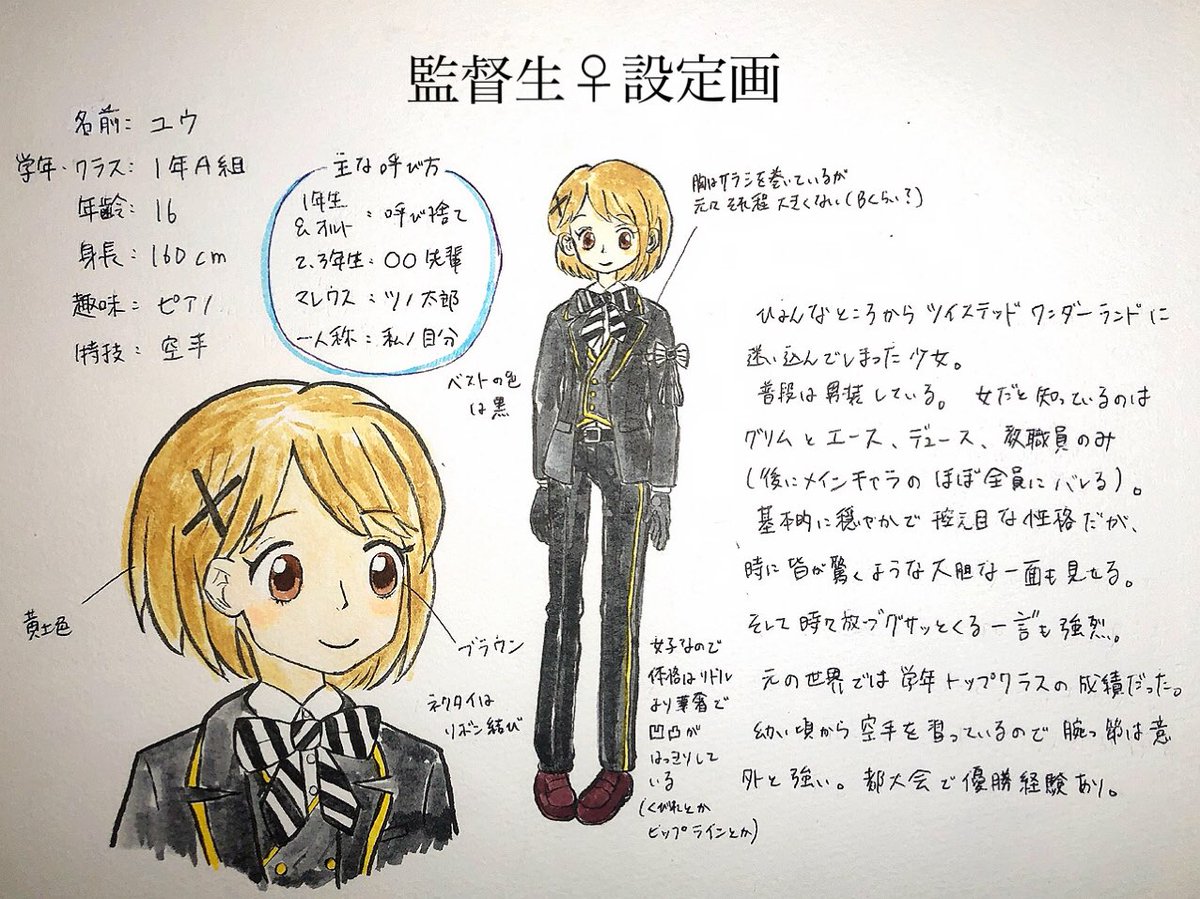 監督生♀設定画
名前: ユウ
学年・クラス: 1年A組
年齢: 16
身長: 160cm
趣味: ピアノ
特技: 空手
主な呼び方
1年生
&オルト : 呼び捨て
2、3年生: 〇〇先輩
マレウス: ツノ太郎
一人称: 私/自分
ベストの色
は黒
胸はサラシを巻いているが
元々それ程大きくない(Bくらい?)
黄土色
ブラウン
ネクタイは
リボン結び
女子なので
体格はリドル
より華奢で
凹凸が
はっきりして
いる
(くびれとか
ヒップラインとか)
ひょんなところからツイステッドワンダーランドに
迷い込んでしまった少女。
普段は男装している。女だと知っているのは
グリムとエース、デュース、教職員のみ
(後にメインキャラのほぼ全員にバレる)。
基本的に穏やかで控え目な性格だが、
時に皆が驚くような大胆な一面も見せる。
そして時々放つグサッとくる一言も強烈。
元の世界では学年トップクラスの成績だった。
幼い頃から空手を習っているので腕っ節は意
外と強い。都大会で優勝経験あり。